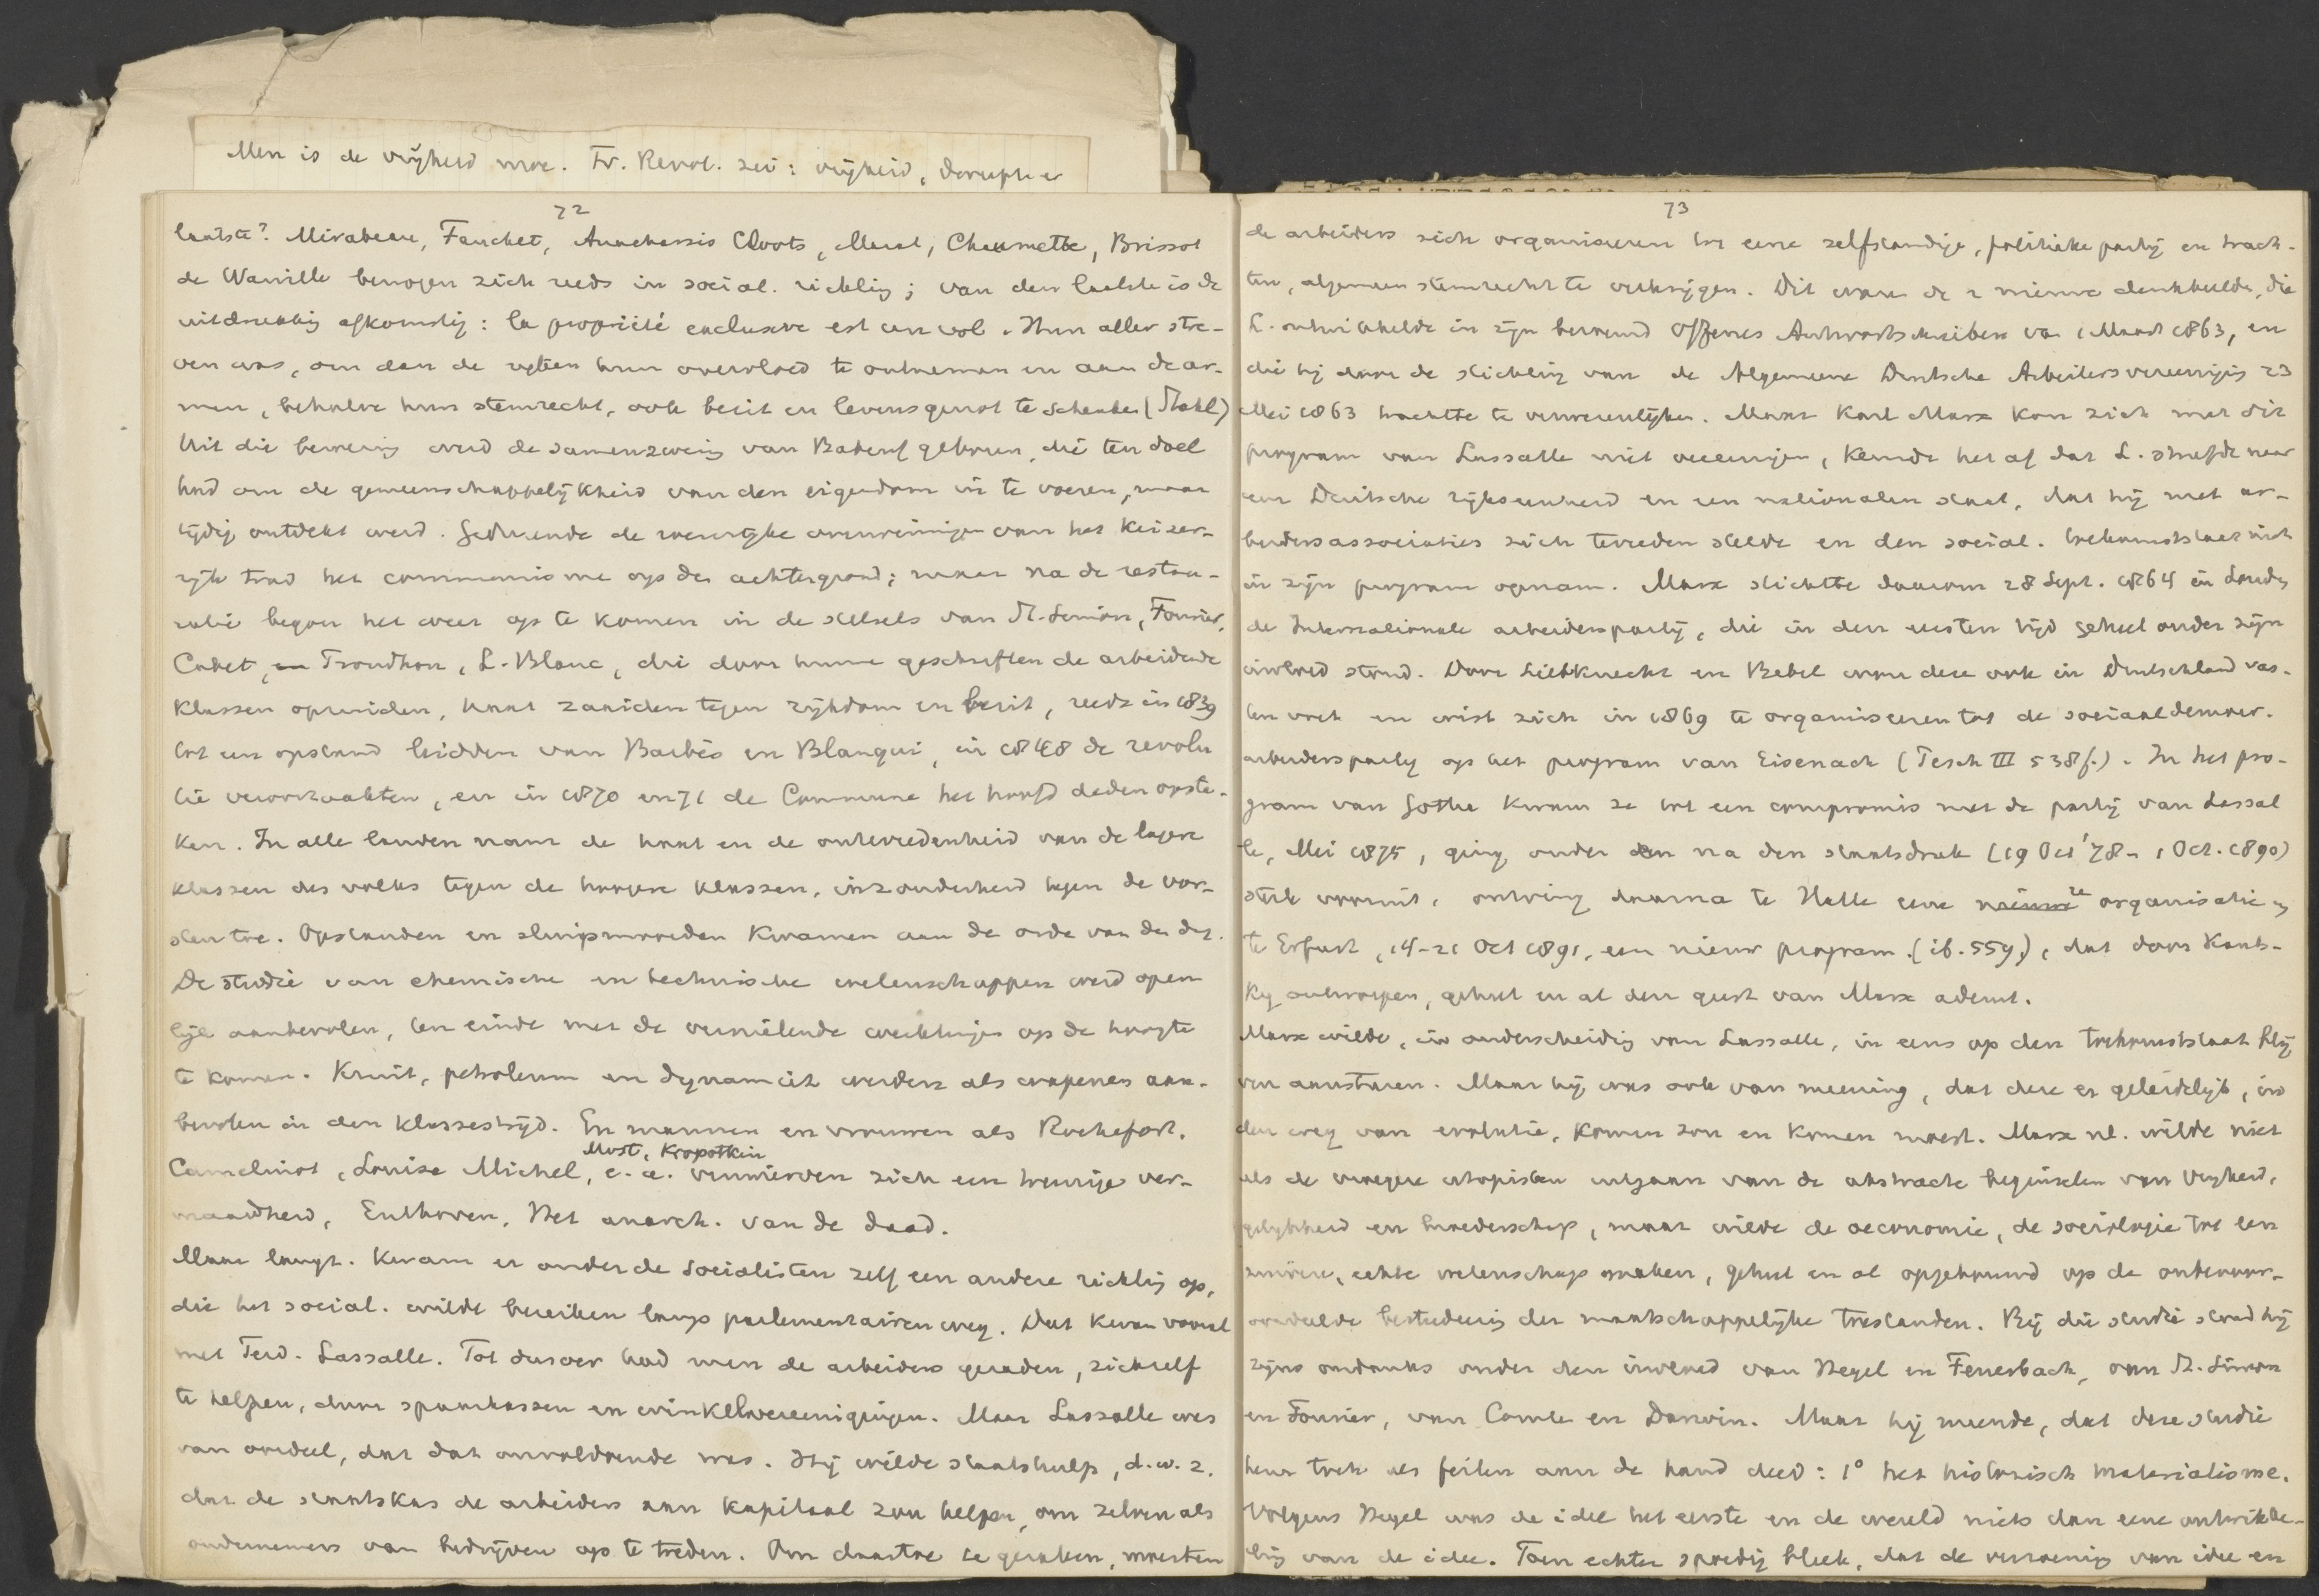 Men is de vrijheid moe. Fr. Revol. zei: vrijheid, daarop is
72
laatste? Mirabeau, Fauchet, Anacharsis Cloots, Marat, Chaumette, Brissot
de Warville bewogen zich reeds in social. richting; van den laatste is de
uitdrukking afkomstig: la propriété exclusive est un vol. Hun aller stre-
ven was, om dan de rijken hun overvloed te ontnemen en aan de ar-
men, behalve hun stemrecht, ook bezit en levensgenot te schenken (Stahl)
Uit die beweging werd de samenzwering van Babeuf geboren, die ten doel
had om de gemeenschappelijkheid van den eigendom in te voeren, maar
tijdig ontdekt werd. Gedurende de overwinningen van het Keizer-
rijk trad het communisme op den achtergrond; maar na de restau-
ratie begon het weer op te komen in de stelsels van St. Simon, Fourier,
Cabet, Proudhon, L. Blanc, die door hunne geschriften de arbeidende
klassen opruiden, haat zaaiden tegen rijkdom en bezit, reeds in 1839
tot een opstand leidden van Barbès en Blanqui, in 1848 de revolu
tie veroorzaakten, en in 1870 en 71 de Commune het hoofd deden opste-
ken. In alle landen nam de haat en de ontevredenheid van de lagere
klassen des volks tegen de hoogere klassen, inzonderheid tegen de vor-
sten toe. Opstanden en sluipmoorden kwamen aan de orde van den dag.
De studie van chemische en technische wetenschappen werd open
lijk aanbevolen, ten einde met de vernielende werktuigen op de hoogte
te komen. Kruit, petroleum en dynamiet werden als wapenen aan-
bevolen in den klassestrijd. En mannen en vrouwen als Rochefort,
Most, Kropotkin
Camelinat, Louise Michel, e.a. verwierven zich een treurige ver-
maardheid, Enthoven, Het anarch. van de daad.
Maar langz. kwam er onder de socialisten zelf een andere richting op,
die het social. wilde bereiken langs parlementairen weg. Dat kwam vooral
met Ferd. Lassalle. Tot dusver had men de arbeiders geraden, zichzelf
te helpen, door spaarkassen en winkelvereenigingen. Maar Lassalle was
van oordeel, dat dat onvoldoende was. Hij wilde staatshulp, d.w.z.
dat de staatskas de arbeiders aan kapitaal zou helpen, om zelven als
ondernemers van bedrijven op te treden. Om daartoe te geraken, moesten
73
de arbeiders zich organiseeren tot eene zelfstandige, politieke partij en trach-
ten, algemeen stemrecht te verkrijgen. Dit waren de 2 nieuwe denkbeelden, die
L. ontwikkelde in zijn beroemd Offenes Antwortschreiben van 1 Maart 1863, en
die hij door de stichting van de Algemeene Duitsche Arbeitersvereeniging 23
Mei 1863 trachtte te verwezenlijken. Maar Karl Marx kon zich met dit
program van Lassalle niet vereenigen, keurde het af dat L. streefde naar
een Duitsche rijkseenheid en een nationalen staat, dat hij met ar-
beidersassociaties zich tevreden stelde en den social. toekomststaat niet
in zijn program opnam. Marx stichtte daarom 28 Sept. 1864 in Londen
de Internationale arbeiderspartij, die in den eersten tijd geheel onder zijn
invloed stond. Door Liebknecht en Bebel won deze ook in Duitschland vas-
ten voet en wist zich in 1869 te organiseeren tot de sociaaldemocr.
arbeiderspartij op het program van Eisenach (Pesch III 538f.). In het pro-
gram van Gotha kwam ze tot een compromis met de partij van Lassal
le, Mei 1875, ging onder en na den staatsdruk (19 Oct '78 - 1 Oct. 1890)
sterk vooruit, ontving daarna te Halle eene organisatie en
te Erfurt, 14-21 Oct 1891, een nieuw program (ib. 559), dat door Kauts-
ky ontworpen, geheel en al den geest van Marx ademt.
Marx wilde, in onderscheiding van Lassalle, in eens op den toekomststaat blij
ven aansturen. Maar hij was ook van meening, dat deze er geleidelijk, in
den weg van evolutie, komen zou en komen moest. Marx nl. wilde niet
als de vroegere utopisten uitgaan van de abstracte beginselen van vrijheid,
gelijkheid en broederschap, maar wilde de oeconomie, de sociologie tot een
zuivere, echte wetenschap maken, geheel en al opgebouwd op de onbevoor-
oordeelde bestudeering der maatschappelijke toestanden. Bij die studie stond hij
zijns ondanks onder den invloed van Hegel en Feuerbach, van St. Simon
en Fourier, van Comte en Darwin. Maar hij meende, dat deze studie
hem toch als feiten aan de hand deed: 1° het historisch materialisme.
Volgens Hegel was de idee het eerste en de wereld niets dan eene ontwikke-
ling van de idee. Toen echter spoedig bleek, dat de verzoening van idee en